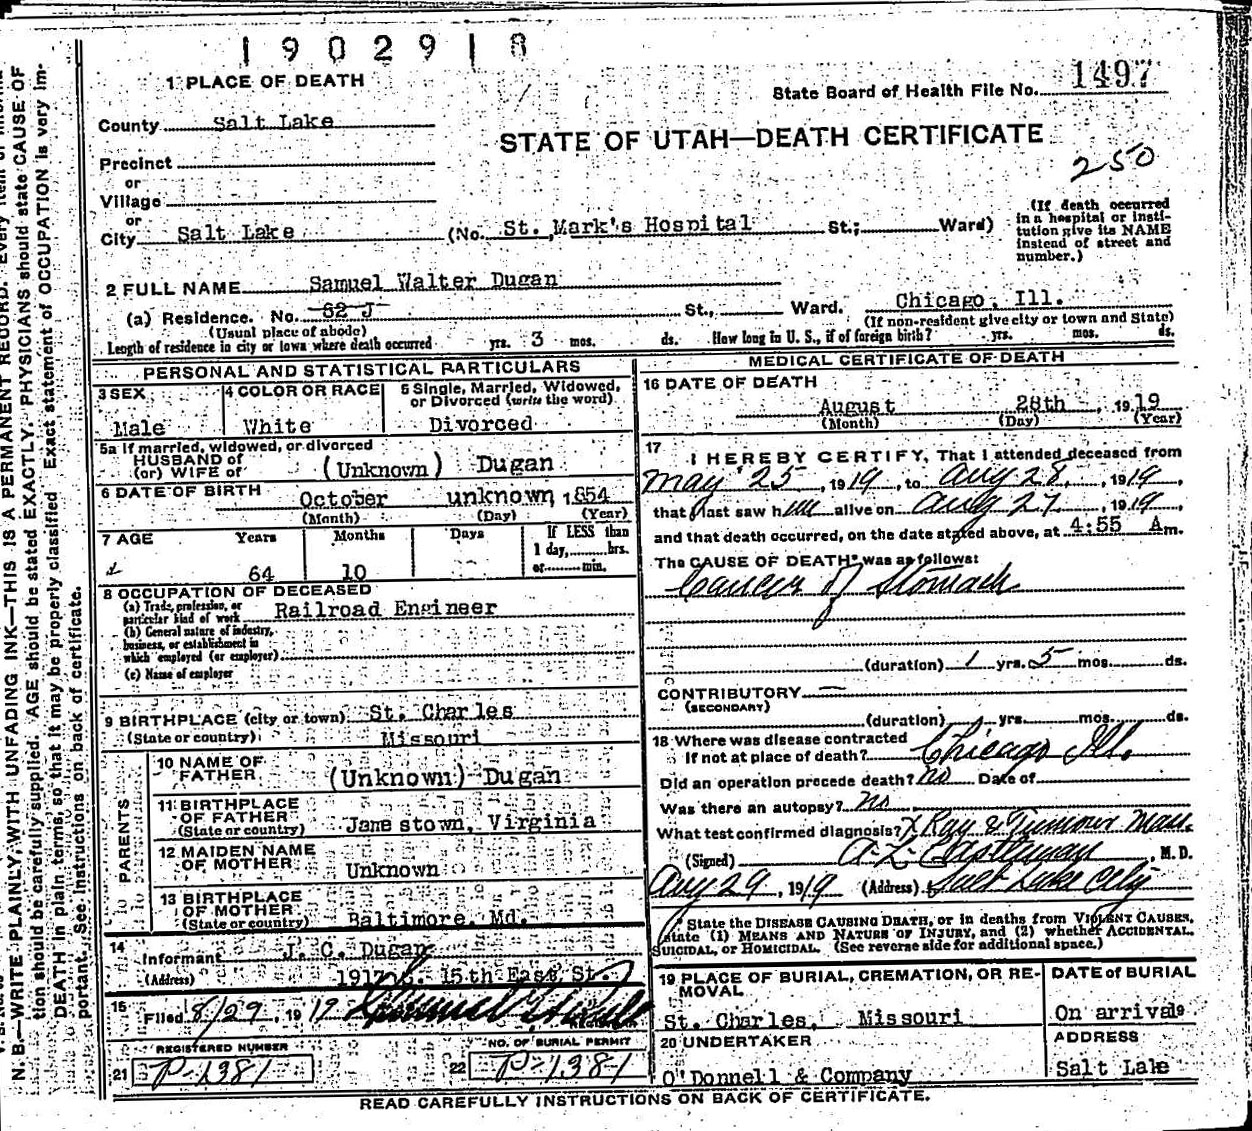 1902918
1 PLACE OF DEATH
State Board of Health File No. 1497
County Salt Lake
STATE OF UTAH—DEATH CERTIFICATE
250
Precinct
or
Village
or
City Salt Lake (No. St. Mark's Hospital St.; Ward)
(If death occurred in a hospital or institution give its NAME instead of street and number.)
2 FULL NAME Samuel Walter Dugan
(a) Residence. No. 62 J St., Ward. Chicago, Ill.
(Usual place of abode) (If non-resident give city or town and State)
Length of residence in city or town where death occurred yrs. 3 mos. ds. How long in U. S., if of foreign birth? yrs. mos. ds.
PERSONAL AND STATISTICAL PARTICULARS
3 SEX 4 COLOR OR RACE 5 Single, Married, Widowed, or Divorced (write the word)
Male White Divorced
5a If married, widowed, or divorced
HUSBAND of
(or) WIFE of (Unknown) Dugan
6 DATE OF BIRTH October unknown, 1854
(Month) (Day) (Year)
7 AGE Years Months Days If LESS than
1 day, hrs.
or min.
64 10
8 OCCUPATION OF DECEASED
(a) Trade, profession, or particular kind of work Railroad Engineer
(b) General nature of industry, business, or establishment in which employed (or employer)
(c) Name of employer
9 BIRTHPLACE (city or town) St. Charles
(State or country) Missouri
PARENTS
10 NAME OF FATHER (Unknown) Dugan
11 BIRTHPLACE OF FATHER
(State or country) Jamestown, Virginia
12 MAIDEN NAME OF MOTHER Unknown
13 BIRTHPLACE OF MOTHER
(State or country) Baltimore, Md.
14 Informant J. C. Dugan
(Address) 1917 15th East St.
15 Filed 8/29, 1919
REGISTERED NUMBER NO. OF BURIAL PERMIT
21 P-1381 22 P-1381
MEDICAL CERTIFICATE OF DEATH
16 DATE OF DEATH
August 28th, 1919
(Month) (Day) (Year)
17 I HEREBY CERTIFY, That I attended deceased from
May 25, 1919, to Aug 28, 1919,
that I last saw him alive on Aug 27, 1919,
and that death occurred, on the date stated above, at 4:55 A m.
The CAUSE OF DEATH* was as follows:
Cancer of Stomach
(duration) 1 yrs. 5 mos. ds.
CONTRIBUTORY —
(SECONDARY)
(duration) yrs. mos. ds.
18 Where was disease contracted
If not at place of death? Chicago Ill.
Did an operation precede death? no Date of
Was there an autopsy? no
What test confirmed diagnosis? X Ray & Tumour Mass.
(Signed) , M. D.
Aug 29, 1919 (Address) Salt Lake City
* State the DISEASE CAUSING DEATH, or in deaths from VIOLENT CAUSES,
state (1) MEANS AND NATURE OF INJURY, and (2) whether ACCIDENTAL,
SUICIDAL, OR HOMICIDAL. (See reverse side for additional space.)
19 PLACE OF BURIAL, CREMATION, OR REMOVAL DATE of BURIAL
St. Charles, Missouri On arrival
20 UNDERTAKER ADDRESS
O'Donnell & Company Salt Lake
READ CAREFULLY INSTRUCTIONS ON BACK OF CERTIFICATE.
N. B.—WRITE PLAINLY, WITH UNFADING INK—THIS IS A PERMANENT RECORD. Every item of
tion should be carefully supplied. AGE should be stated EXACTLY. PHYSICIANS should state CAUSE OF
DEATH in plain terms, so that it may be properly classified. Exact statement of OCCUPATION is very im-
portant. See instructions on back of certificate.